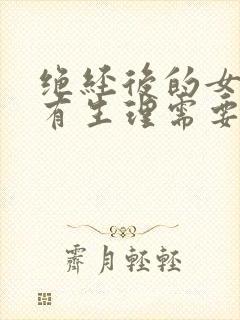 绝经后的女
有生理需要
霁月轻轻